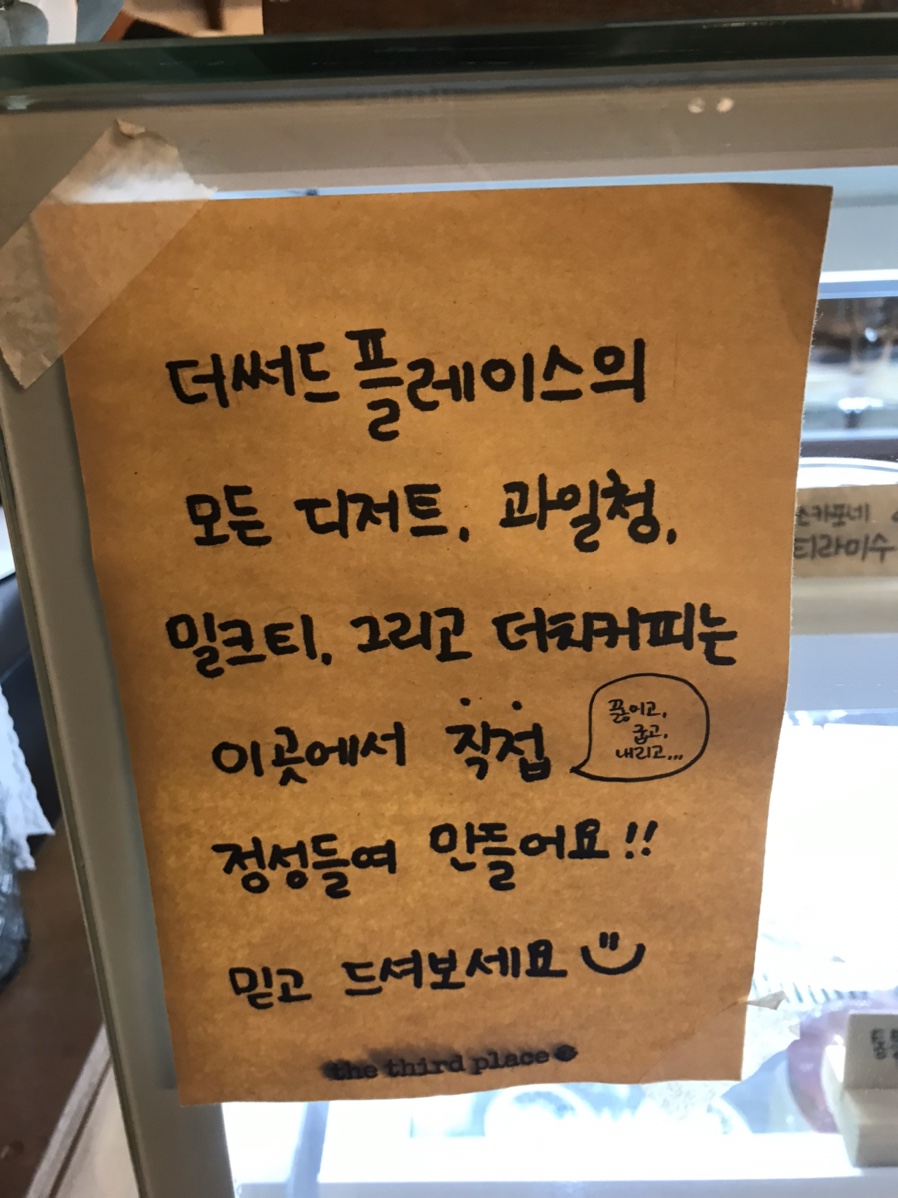 더써드플레이스의
모든 디저트, 과일청,
밀크티, 그리고 더치커피는
이곳에서 직접
끓이고,
굽고,
내리고...
정성들여 만들어요!!
믿고 드셔보세요
the third place
티라미수